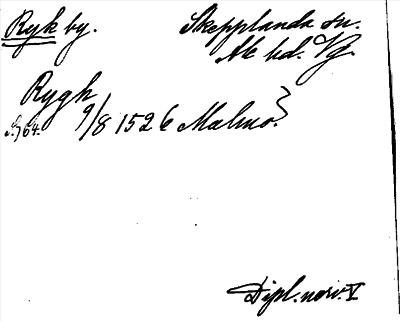 Ryk by. Skepplanda sn.
Ale hd. Vg.
Rygh
S, 64. 9/8 1526 Malmö.}
Dipl. norv. V